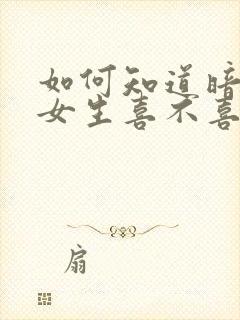 如何知道暗
女生喜不喜
扇